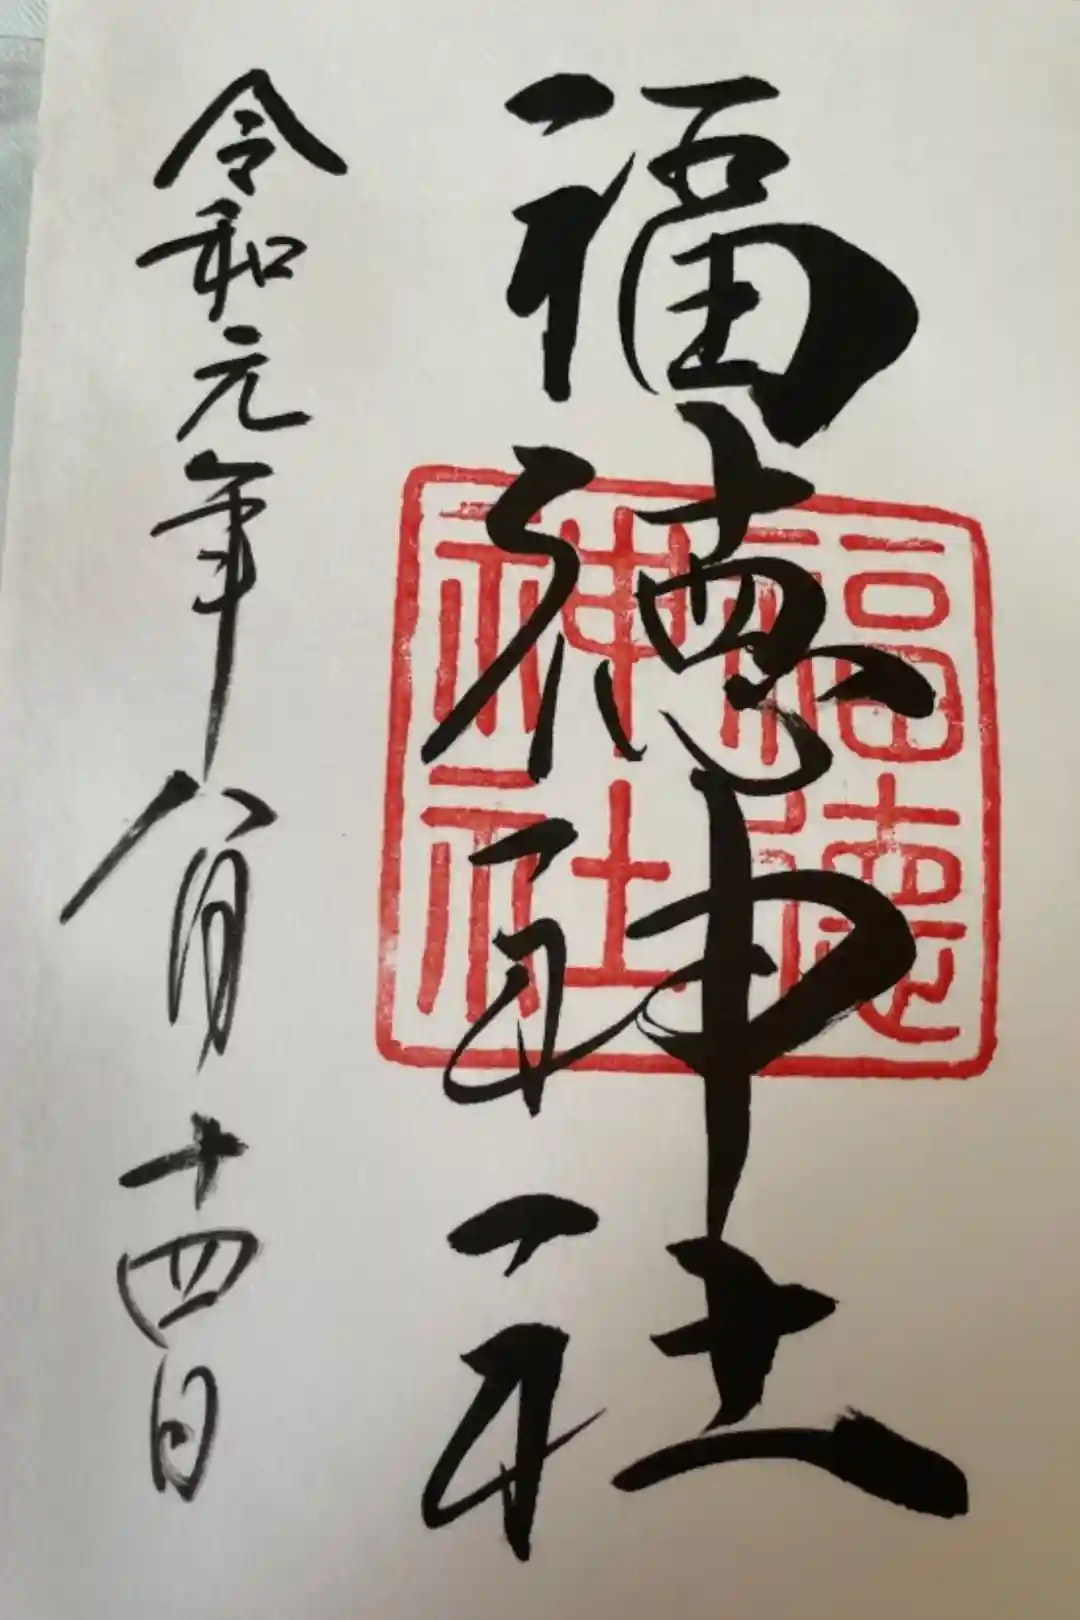 福徳神社
福徳
神社
令和元年八月十四日